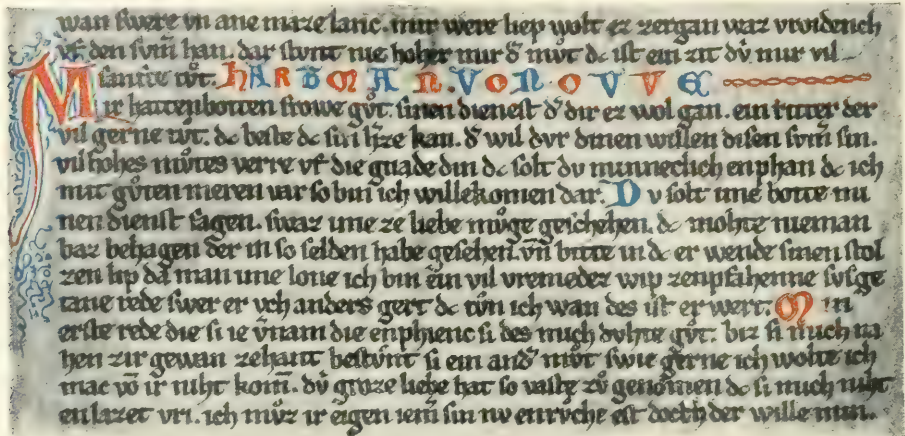 wan swere vn ane maze lanc. mir were liep wolt ez zergan waz vroidench
vf den svm̄ han. dar stvnt nie hoher mir d̄ mv̊t dc ist ein zit dv̍ mir vil
sanfte tv̊t. HARDMAN. VON OVVE
Mir hattenbotten frowe gv̊t. sinen dienest d̄ dir ez wol gan. ein ritter der
vil gerne tvt. dc beste dc sin h̄ze kan. d̄ wil dvr dinen willen disen svm̄ sin.
vil hohes mv̊tes verre vf die gnade din dc solt dv minneclich enphan dc ich
mit gv̊ten meren var so bin ich willekomen dar. Dv solt ime botte mi
nen dienst sagen. swaz ime ze liebe mv̊ge geschehen. dc mohte nieman
baz behagen der in so selden habe gesehen. vn̄ bitte in dc er wende sinen stol
zen lip da man ime lone ich bin ein vil vremedez wip zenpfahenne svsge
tane rede swer er vch anders gert dc tv̊n ich wan des ist er wert. Min
erste rede die si ie v̄nam die enphienc si des mich dvhte gv̊t. biz si mich na
hen zir gewan zehant bestv̊nt si ein and̄ mv̊t swie gerne ich wolte ich
mac vō ir niht kom̄. dv̍ groze liebe hat so vaste zv̊ genomen dc si mich niht
enlazet vri. ich mv̊z ir eigen iem̄ sin nv enrvche est doch der wille min.